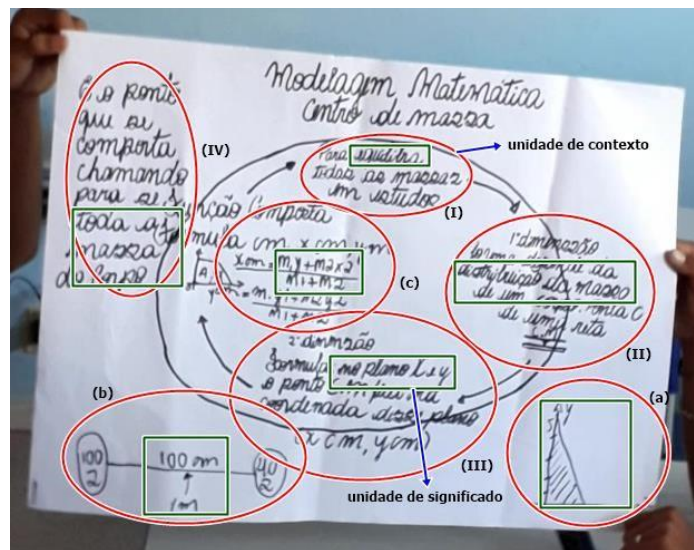 Modelagem Matemática
Centro de massa
É o ponto
que se
comporta
chamando
para si,
toda a
massa
do corpo
(IV)
Para equilibra
todas as massas
em estudos
(I)
unidade de contexto
Função Composta
Fórmula em x cm y cm
x cm =
m1 + m2
(c)
A
y cm =
m1 + m2
1ª dimensão
distribuição da massa
de um
de uma reta
(II)
2ª dimensão
fórmula no plano x e y
o ponto
coordenada desse plano
(x cm, y cm)
(III)
unidade de significado
(b)
100
2
100 cm
1m
40
2
(a)
y